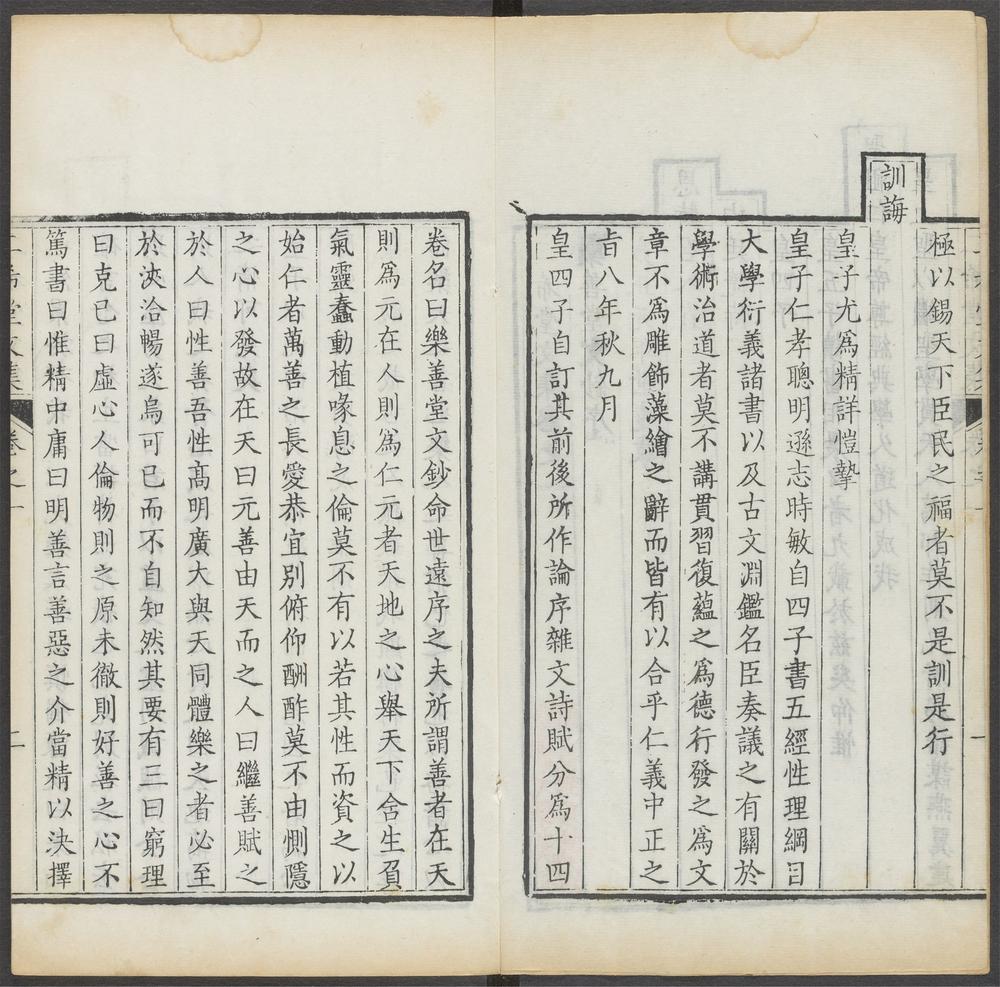 極以錫天下臣民之福者莫不是訓是行
訓誨
皇子尤爲精詳愷摯
皇子仁孝聰明遜志時敏自四子書五經性理綱目
大學衍義諸書以及古文淵鑑名臣奏議之有關於
學術治道者莫不講貫習復蘊之爲德行發之爲文
章不爲雕飾藻繪之辭而皆有以合乎仁義中正之
旹八年秋九月
皇四子自訂其前後所作論序雜文詩賦分爲十四
卷名曰樂善堂文鈔命世遠序之夫所謂善者在天
則爲元在人則爲仁元者天地之心舉天下含生負
氣靈蠢動植喙息之倫莫不有以若其性而資之以
始仁者萬善之長愛恭宜別俯仰酬酢莫不由惻隱
之心以發故在天曰元善由天而之人曰繼善賦之
於人曰性善吾性髙明廣大與天同體樂之者必至
於浹洽暢遂烏可已而不自知然其要有三曰窮理
曰克已曰虛心人倫物則之原未徹則好善之心不
篤書曰惟精中庸曰明善言善惡之介當精以決擇
二希堂文集 卷之一 二